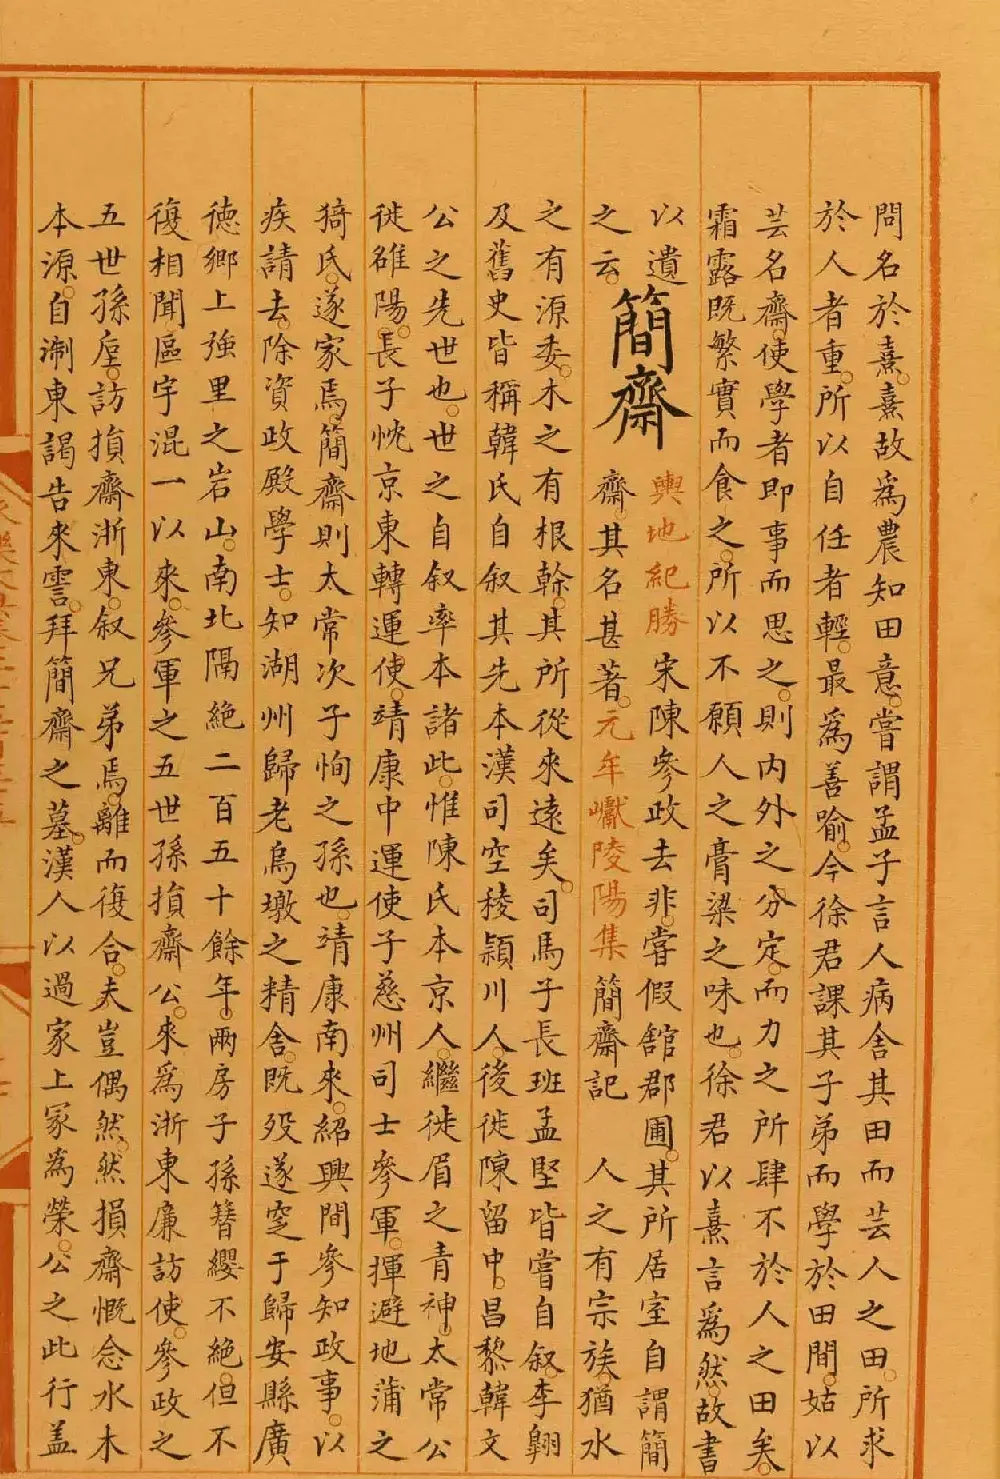 問名於熹。熹故為農知田意。嘗謂孟子言人病舍其田而芸人之田。所求
於人者重。所以自任者輕。最為善喻。今徐君課其子弟而學於田間。姑以
芸名齋。使學者即事而思之。則内外之分定。而力之所肆不於人之田矣。
霜露既繁實而食之。所以不願人之膏粱之味也。徐君以熹言為然。故書
以遺
之云。
簡齋
輿地紀勝宋陳參政去非。嘗假舘郡圃。其所居室自謂簡
齋。其名甚著。元牟巘陵陽集簡齋記 人之有宗族。猶水
之有源委。木之有根幹。其所從來遠矣。司馬子長班孟堅皆嘗自叙。李翱
及舊史皆稱韓氏自叙其先本漢司空稜潁川人。後徙陳留中。昌黎韓文
公之先世也。世之自叙率本諸此。惟陳氏本京人。繼徙眉之青神。太常公
徙雒陽。長子忱京東轉運使。靖康中運使子慈州司士參軍。揮避地蒲之
猗氏。遂家焉。簡齋則太常次子恂之孫也。靖康南來。紹興間參知政事。以
疾請去。除資政殿學士。知湖州歸老烏墩之精舍。既歿遂窆于歸安縣廣
德鄉上强里之岩山。南北隔絶二百五十餘年。兩房子孫簪纓不絶。但不
復相聞。區宇混一以來。參軍之五世孫損齋公。來為浙東廉訪使。參政之
五世孫垕。訪損齋浙東。叙兄弟焉。離而復合。夫豈偶然。然損齋慨念水木
本源。自淛東謁告來霅。拜簡齋之墓。漢人以過家上冢為榮。公之此行盖